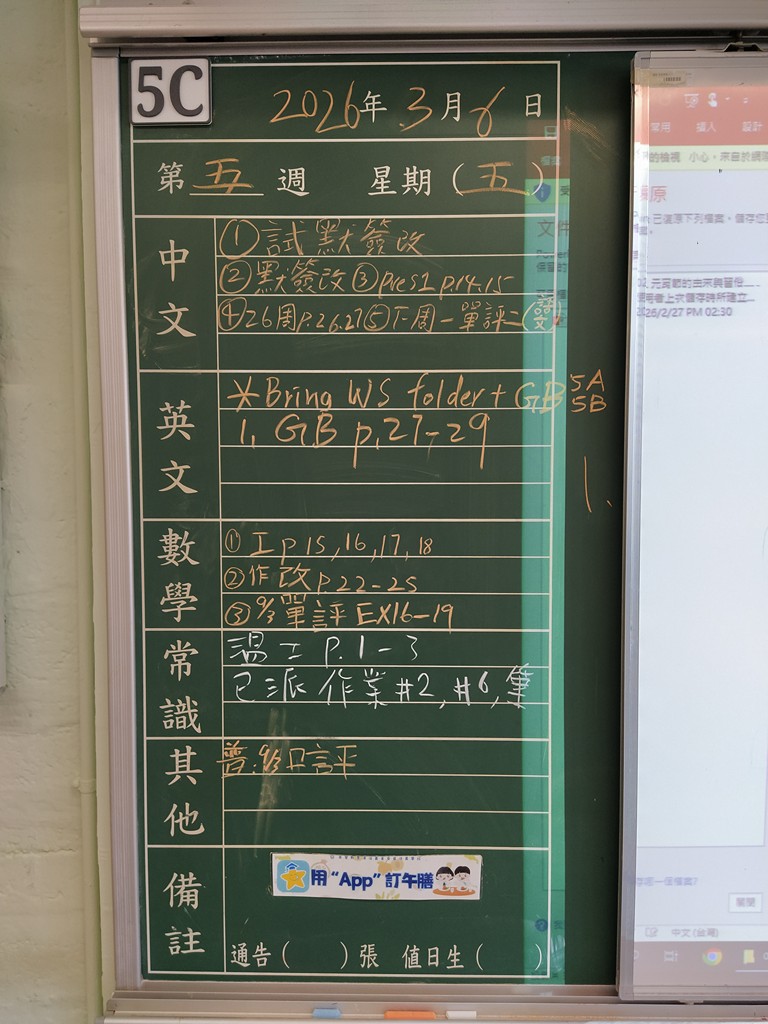 5C
2026年3月6日
第五週 星期(五)
中文
①試默簽改
②默簽改③pres1 p.14-15
④26周P.26,27⑤下周一單評二(語文)
英文
*Bring WS folder + GB 5A 5B
1. GB p.27-29
1.
數學
①工p15,16,17,18
②作改p.22-25
③9/3單評EX16-19
常識
溫工P.1-3
已派作業#2,#6,筆
其他
普:9/3口評
備註
用“App”訂午膳
通告( )張 值日生( )
常用 插入 設計
的檢視 小心,來自於網際
復原
已復原下列檔案。儲存您
元宵節的由來與習俗...
使用者上次儲存時所建立...
2026/2/27 PM 02:30
文件
哪一個檔案?
關閉
中文(台灣)